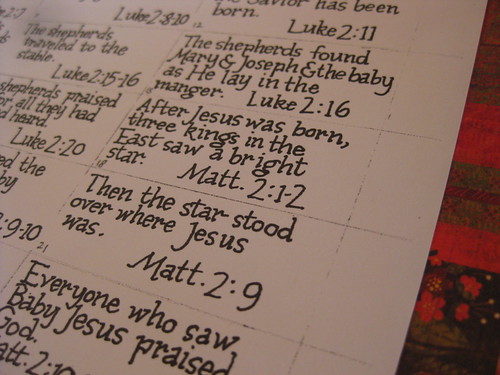 Luke 2:8-10
12
Savior has been
born.
Luke 2:11
The shepherds
traveled to the
stable.
Luke 2:15-16
The shepherds found
Mary & Joseph & the baby
as He lay in the
manger. Luke 2:16
shepherds praised
all they had
heard.
Luke 2:20
After Jesus was born,
three kings in the
East saw a bright
star.
Matt. 2:1-2
18
the
:9-10
Then the star stood
over where Jesus
was.
Matt. 2:9
21
Everyone who saw
Baby Jesus praised
God.